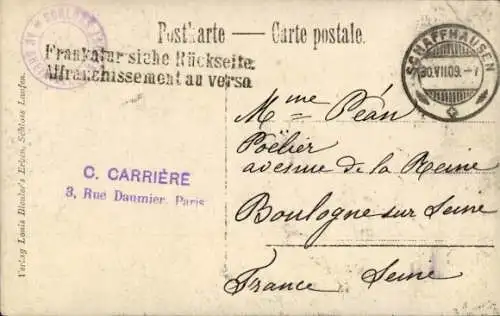 Postkarte — Carte postale.
Frankatur siehe Rückseite
Affranchissement au verso
SCHAFFHAUSEN
30.VII.09.–7
Mme Péan
Poëlier
avenue de la Reine
Boulogne sur Seine
France Seine
C. CARRIÈRE
3, Rue Daumier, Paris
Verlag Louis Bleuler's Erben, Schloss Laufen.